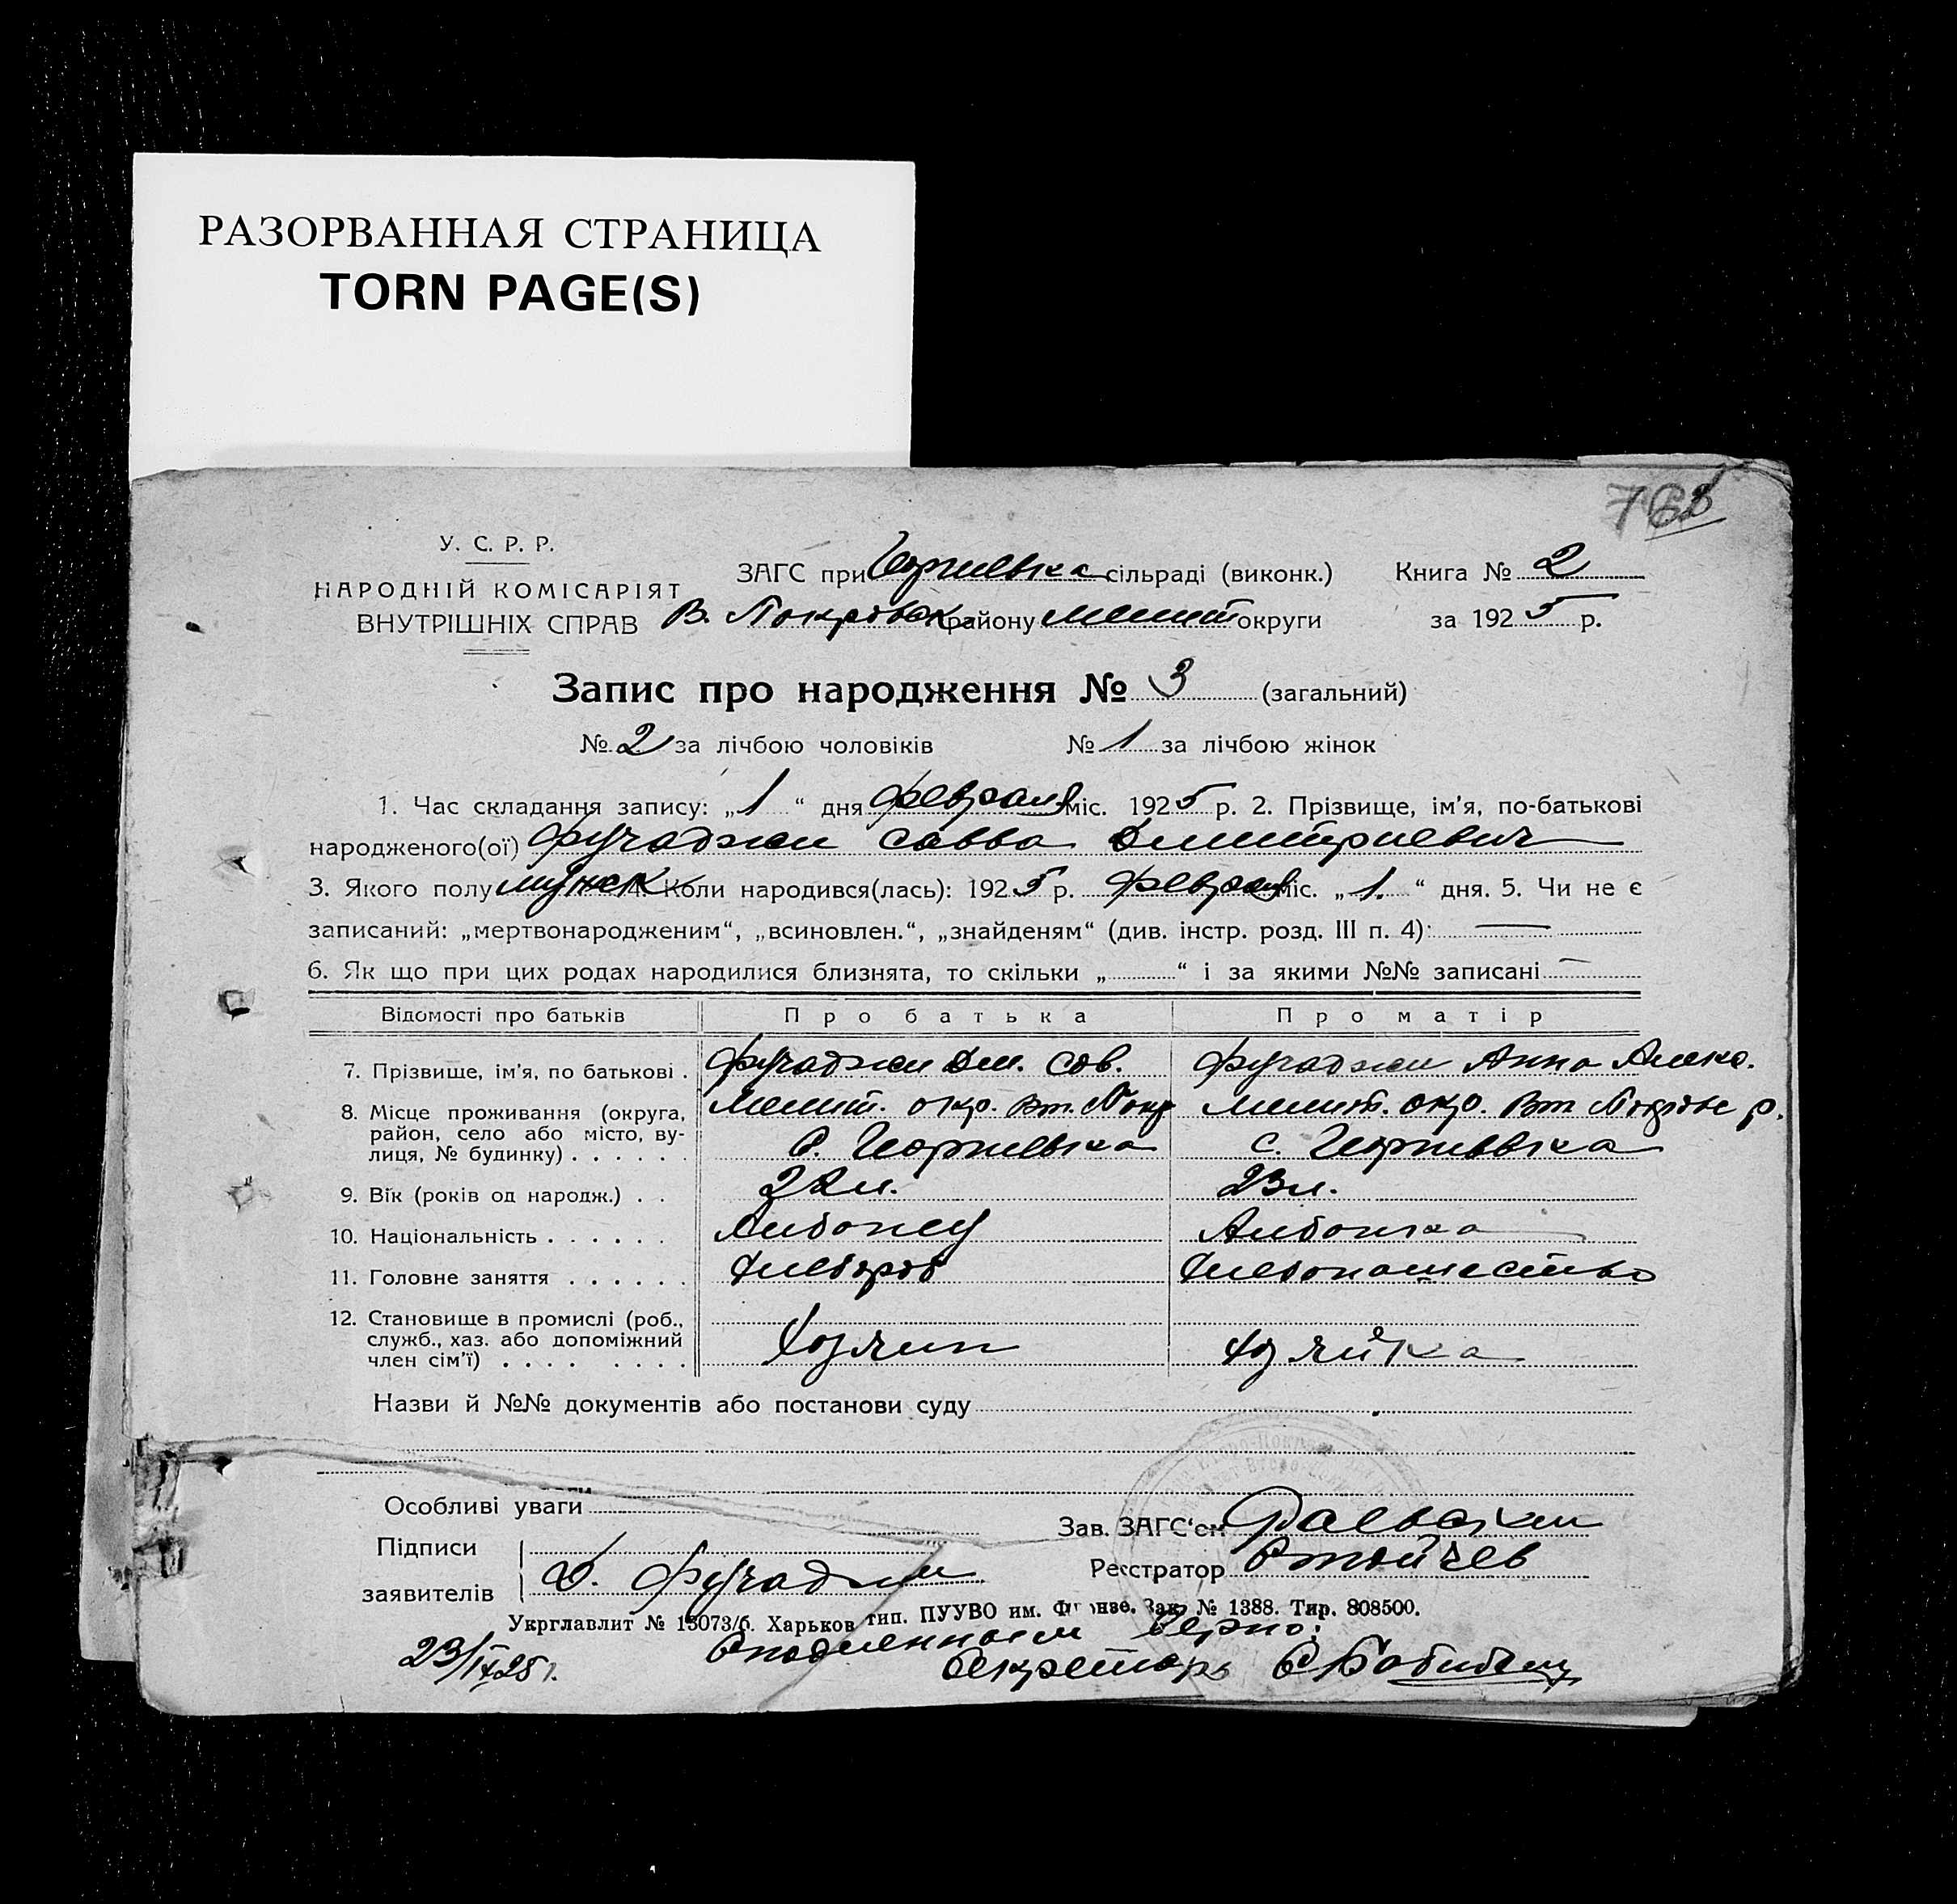 РАЗОРВАННАЯ СТРАНИЦА
TORN PAGE(S)
У. С. Р. Р.
НАРОДНІЙ КОМІСАРІЯТ
ВНУТРІШНІХ СПРАВ
ЗАГС при Георгиевка сільраді (виконк.) Книга № 2
В. Покровск. району Мелит округи за 1925 р.
Запис про народження № 3 (загальний)
№ 2 за лічбою чоловіків № 1 за лічбою жінок
1. Час складання запису: „1“ дня февраля міс. 1925 р. 2. Прізвище, ім'я, по-батькові
народженого(ої) Фучаджи Савва Димитриевич
3. Якого полу мужск 4. Коли народився(лась): 1925 р. февраля міс. „1.“ дня. 5. Чи не є
записаний: „мертвонародженим“, „всиновлен.“, „знайденям“ (див. інстр. розд. III п. 4): —
6. Як що при цих родах народилися близнята, то скільки „ “ і за якими №№ записані —
Відомості про батьків Про батька Про матір
7. Прізвище, ім'я, по батькові . Фучаджи Дм. Сав. Фучаджи Анна Алекс.
8. Місце проживання (округа, район, село або місто, вулиця, № будинку) . . . . . . Мелит. окр. Вт. Покр с. Георгиевка Мелит. окр. Вт Покровс р. с. Георгиевка
9. Вік (років од народж.) . . 22 л. 23 л.
10. Національність . . . . . . Албонец Албонка
11. Головне заняття . . . . . . Хлебороб Хлебопашество
12. Становище в промислі (роб., служб., хаз. або допоміжний член сім'ї) . . . . . . . . Хозяин Хозяйка
Назви й №№ документів або постанови суду
Особливі уваги
Зав. ЗАГС'ом
Підписи
заявителів Д. Фучаджи
Реєстратор Стойчев
Укрглавлит № 13073/б. Харьков тип. ПУУВО им. Фрунзе. Зак. № 1388. Тир. 808500.
С подленным верно:
23/IX 25 г. Секретарь